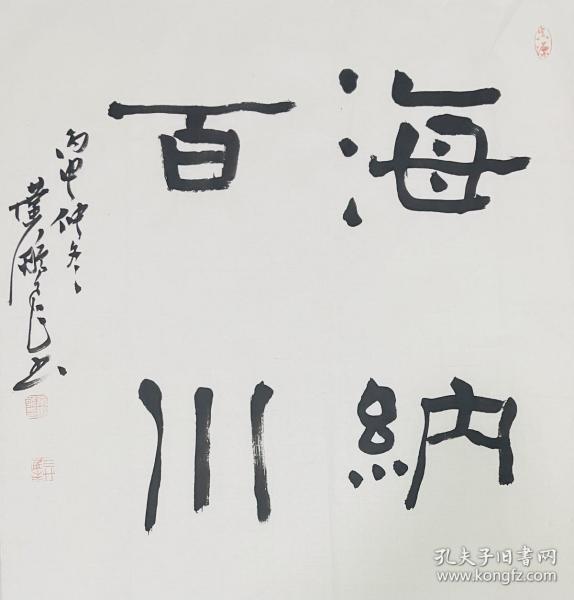 海納
百川
丙申仲冬
孔夫子旧书网
www.kongfz.com